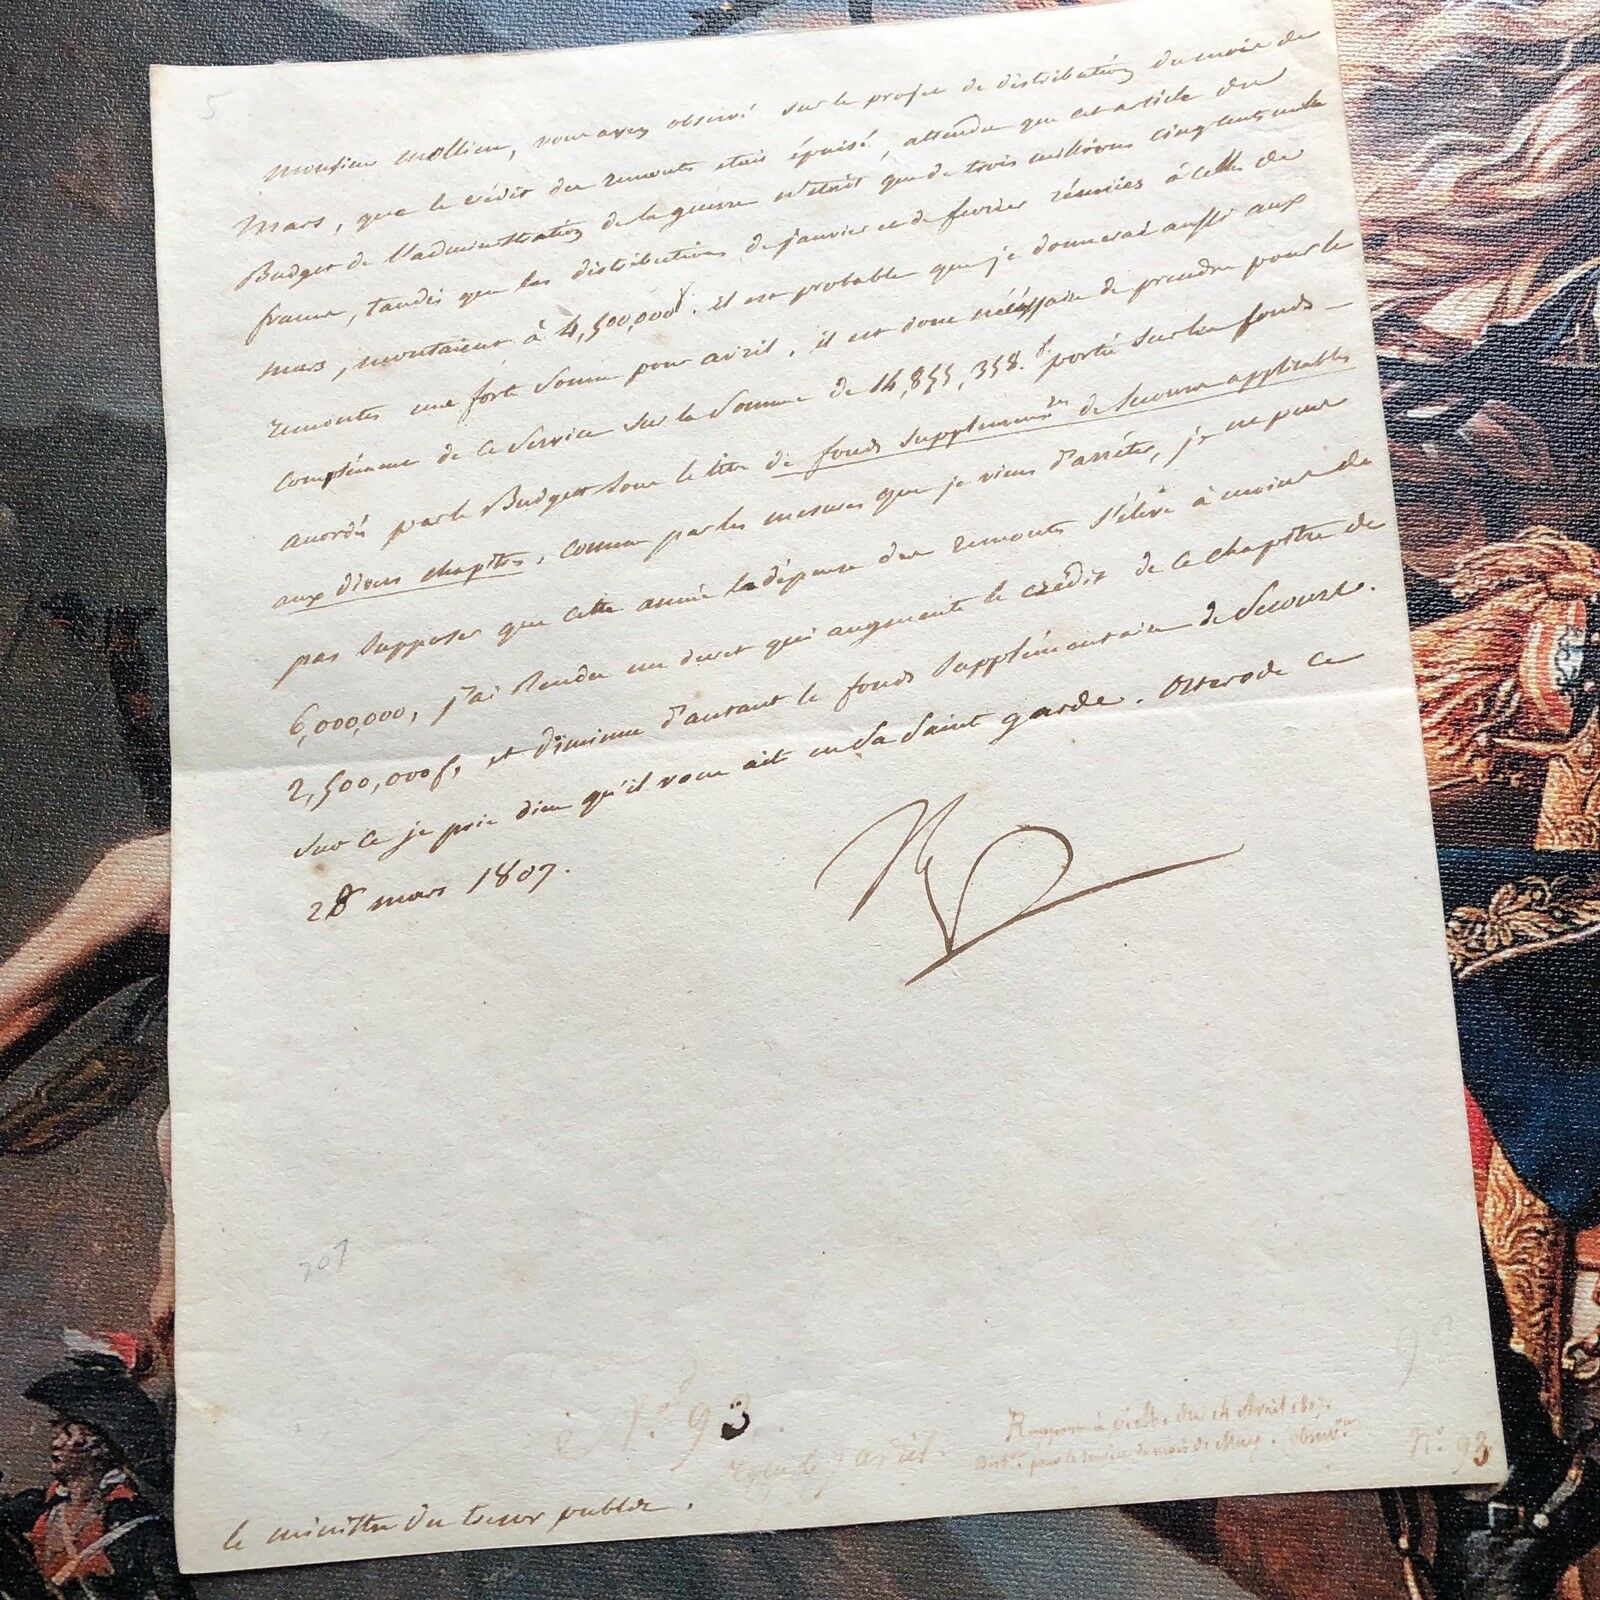 5
Monsieur Mollien, vous avez observé sur le projet de distribution du mois de
Mars, que le crédit des remontes était épuisé, attendu que cet article du
Budget de l'administration de la guerre n'était que de trois millions cinq cent mille
francs, tandis que les distributions de janvier et de fevrier réunies à celle de
mars, montaient à 4,500,000f. il est probable que je donnerai aussi aux
remontes une forte somme pour avril, il est donc nécessaire de prendre pour le
complément de ce service sur la somme de 14,855,358.f porté sur les fonds
accordés par le Budget sous le titre de fonds supplémres de secours applicables
aux divers chapitres, comme par les mesures que je viens d'arrêter, je ne peux
pas supposer que cette année la dépense des remontes s'élève à moins de
6,000,000, j'ai rendu un decret qui augmente le crédit de ce chapitre de
2,500,000f, et diminue d'autant le fonds supplémentaire de secours.
sur ce je prie dieu qu'il vous ait en sa saint garde. Osterode ce
28 mars 1807.
Np
707
93
No. 93
reçu le 7 avril.
Réponse à celle du 14 Avril 1807.
Diston pour le service du mois de Mars. observon
No. 93
le ministre du tresor public.